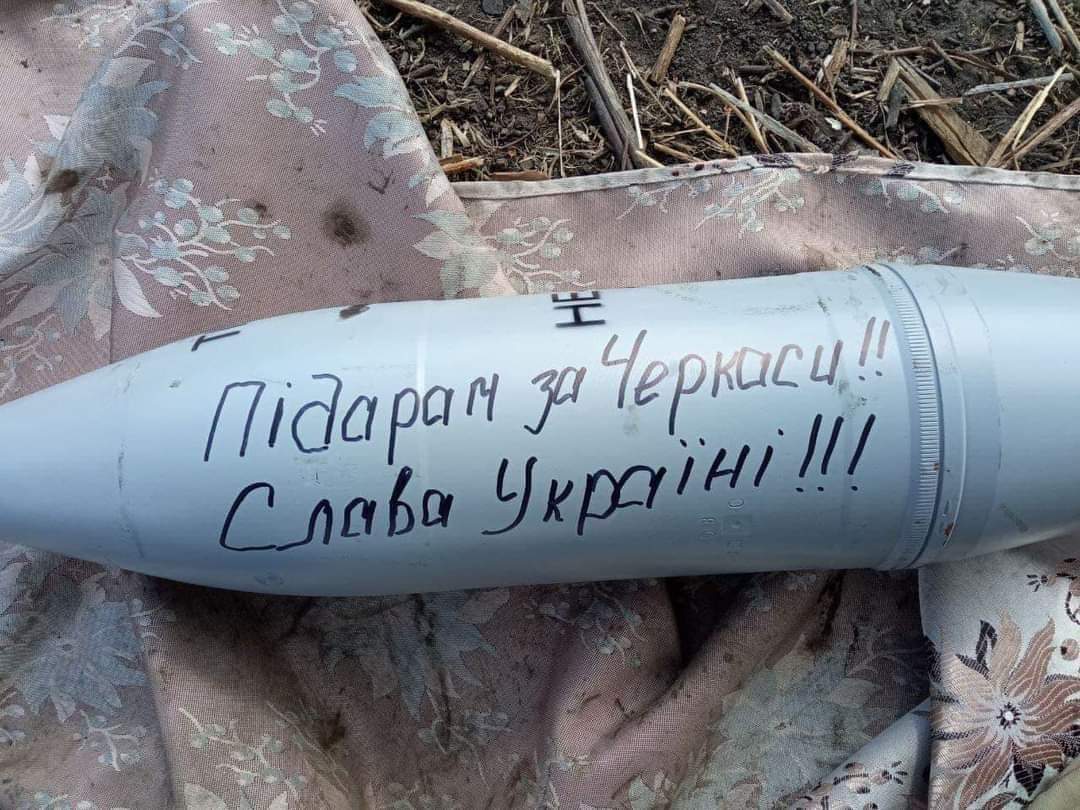 Т
НЕ
Підарам за Черкаси!!
Слава Україні!!!